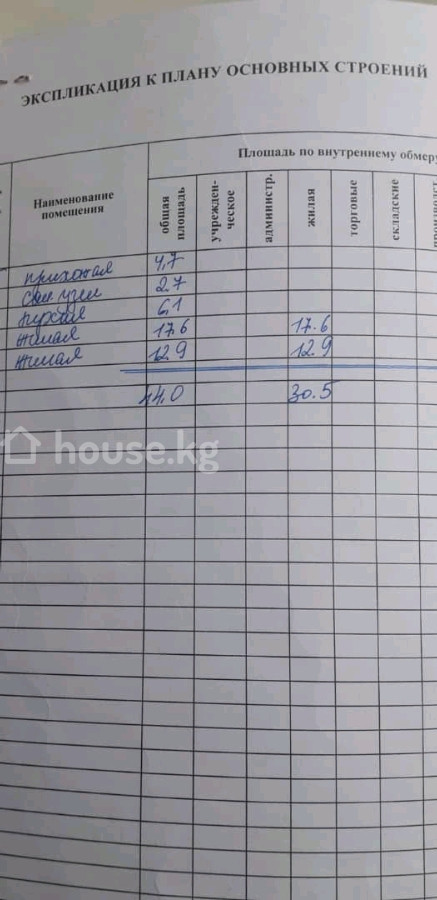 ЭКСПЛИКАЦИЯ К ПЛАНУ ОСНОВНЫХ СТРОЕНИЙ
Площадь по внутреннему обмеру
Наименование помещения
общая площадь
учрежден-ческое
администр.
жилая
торговые
складские
прихожая 4,7
сан. узел 2.7
кухня 6,1
жилая 17.6 17.6
жилая 12.9 12.9
44.0 30.5
house.kg